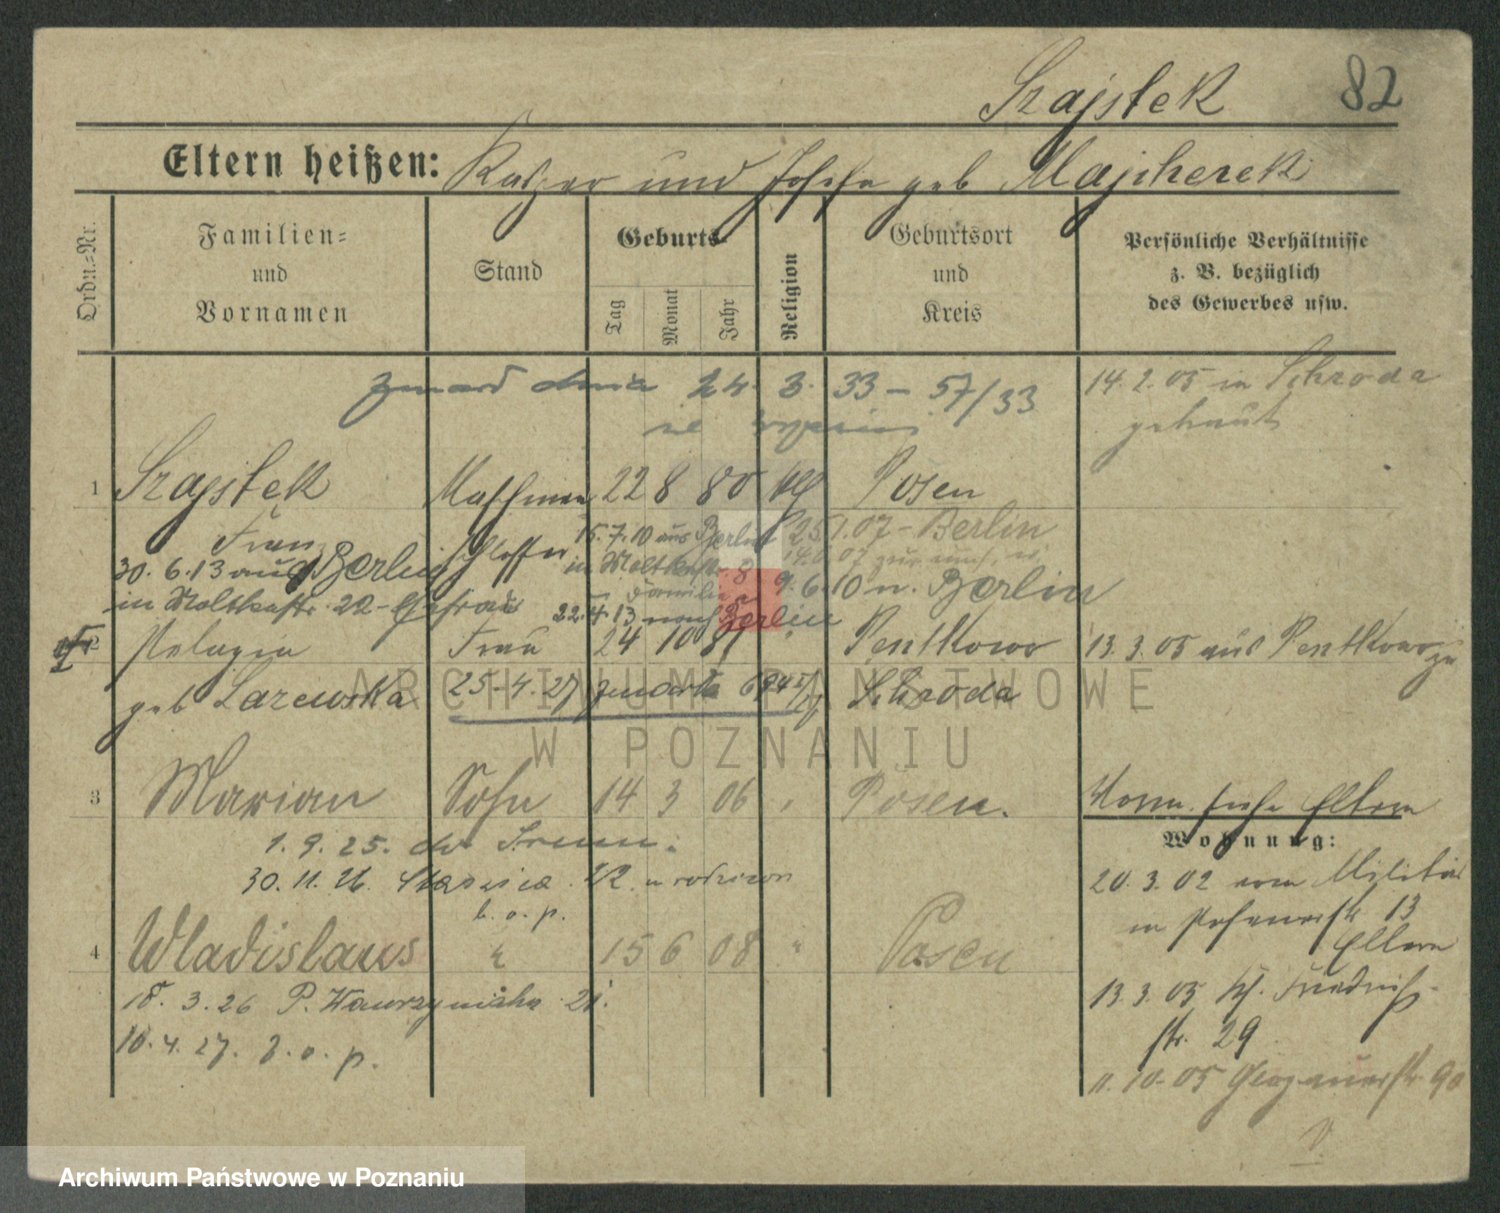 Szajstek 82
Eltern heißen: Kasper und Josefa geb Majcherek
Ordn.=Nr.
Familien= und Vornamen
Stand
Geburts=
Tag Monat Jahr
Religion
Geburtsort und Kreis
Persönliche Verhältnisse z. B. bezüglich des Gewerbes usw.
zmarł dnia 24. 3. 33 – 57/33
14. 2. 05 in Schroda
getraut
1 Szajstek 22 8 80 Posen
Franz Schlosser 15. 7. 10 aus Berlin 25.1.07 – Berlin
30. 6. 13 aus Berlin in Moltkestr 8
9. 6. 10 n. Berlin
in Moltkestr. 22 – Familie 22. 4. 13 nach Berlin
2 Pelagia Frau 24 10 81 Pentkowo 13. 3. 05 aus Pentkowo zu
geb Lazewska 25–4. 27 zmarła Schroda
ARCHIWUM PAŃSTWOWE
W POZNANIU
3 Marian Sohn 14 3 06 " Posen. Wohn. siehe Eltern
1. 9. 25. do
Wohnung:
30. 11. 26.
b. o. p.
20. 3. 02 vom Militär
in Posenerstr 13
Eltern
4 Wladislaus " 15 6 08 " Posen
18. 3. 26 P. Wawrzyniaka 21.
13. 3. 05 Friedrich-
str. 29
10. 4. 27. b. o. p.
11. 10. 05 Glogauerstr 90
Archiwum Państwowe w Poznaniu